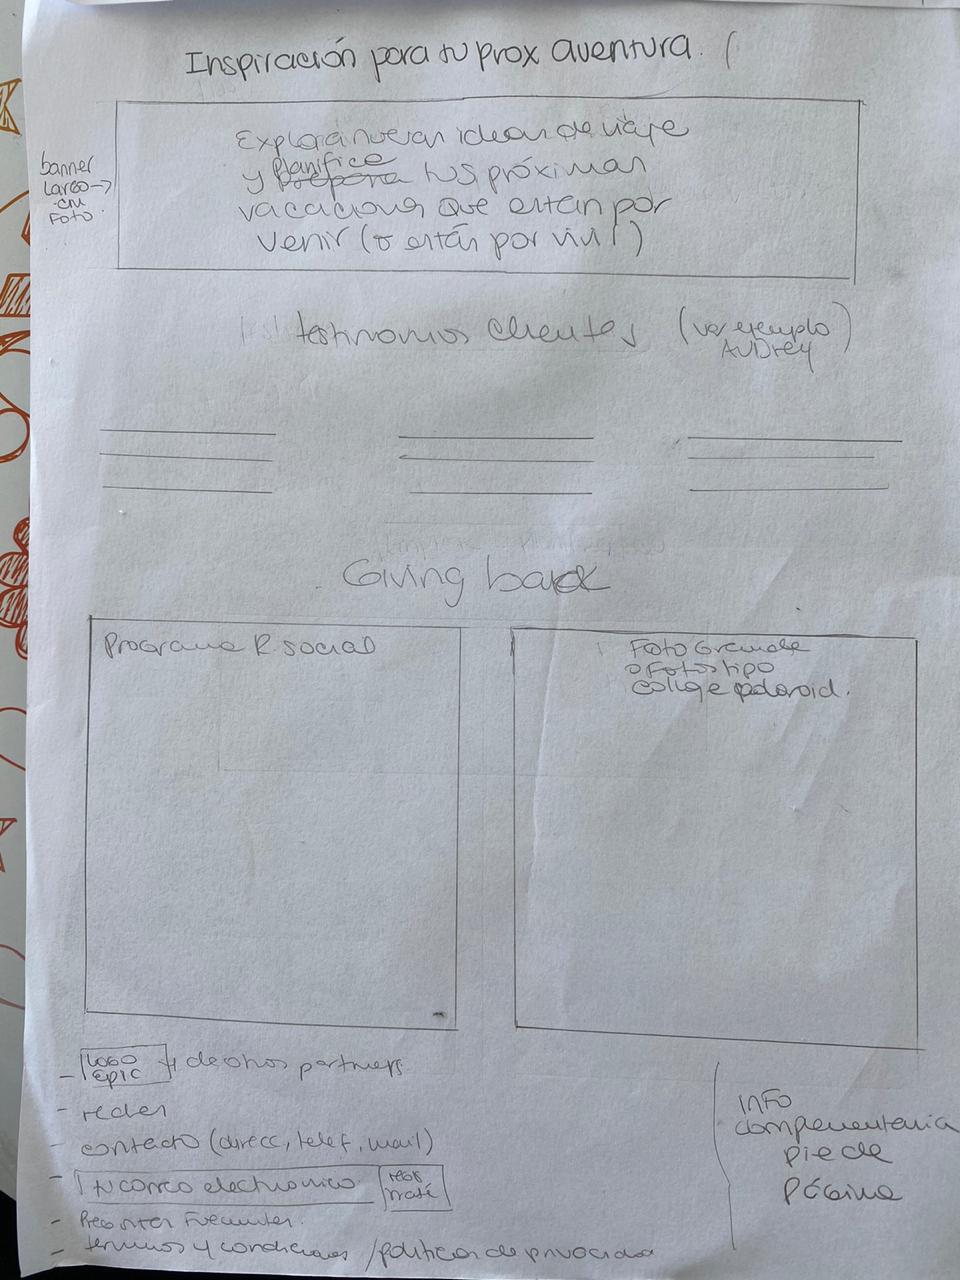 Inspiración para tu prox aventura. (
banner
largo →
con
Foto.
Explorá nuevas ideas de viaje
y planifica tus próximas
prepara
vacaciones que están por
venir (o están por vivir)
testimonios clientes (ver ejemplo
AUDrey)
Giving back
Programa R social
Foto Grande
o Fotos tipo
collage polaroid.
- LOGO
EPIC
+ de otros partners
- redes
- contacto (direcc, telef, mail)
- tu correo electronico
regis
trate
- Preguntas Frecuentes.
- terminos y condiciones / politicas de privacidad
INFO
complementaria
pie de
página